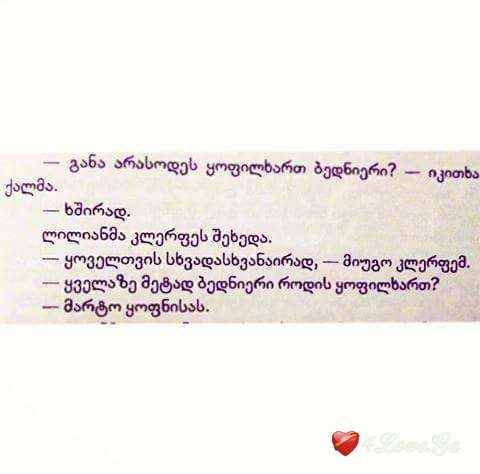 — განა არასოდეს ყოფილხართ ბედნიერი? — იკითხა
ქალმა.
— ხშირად.
ლილიანმა კლერფეს შეხედა.
— ყოველთვის სხვადასხვანაირად, — მიუგო კლერფემ.
— ყველაზე მეტად ბედნიერი როდის ყოფილხართ?
— მარტო ყოფნისას.
4Love.Ge